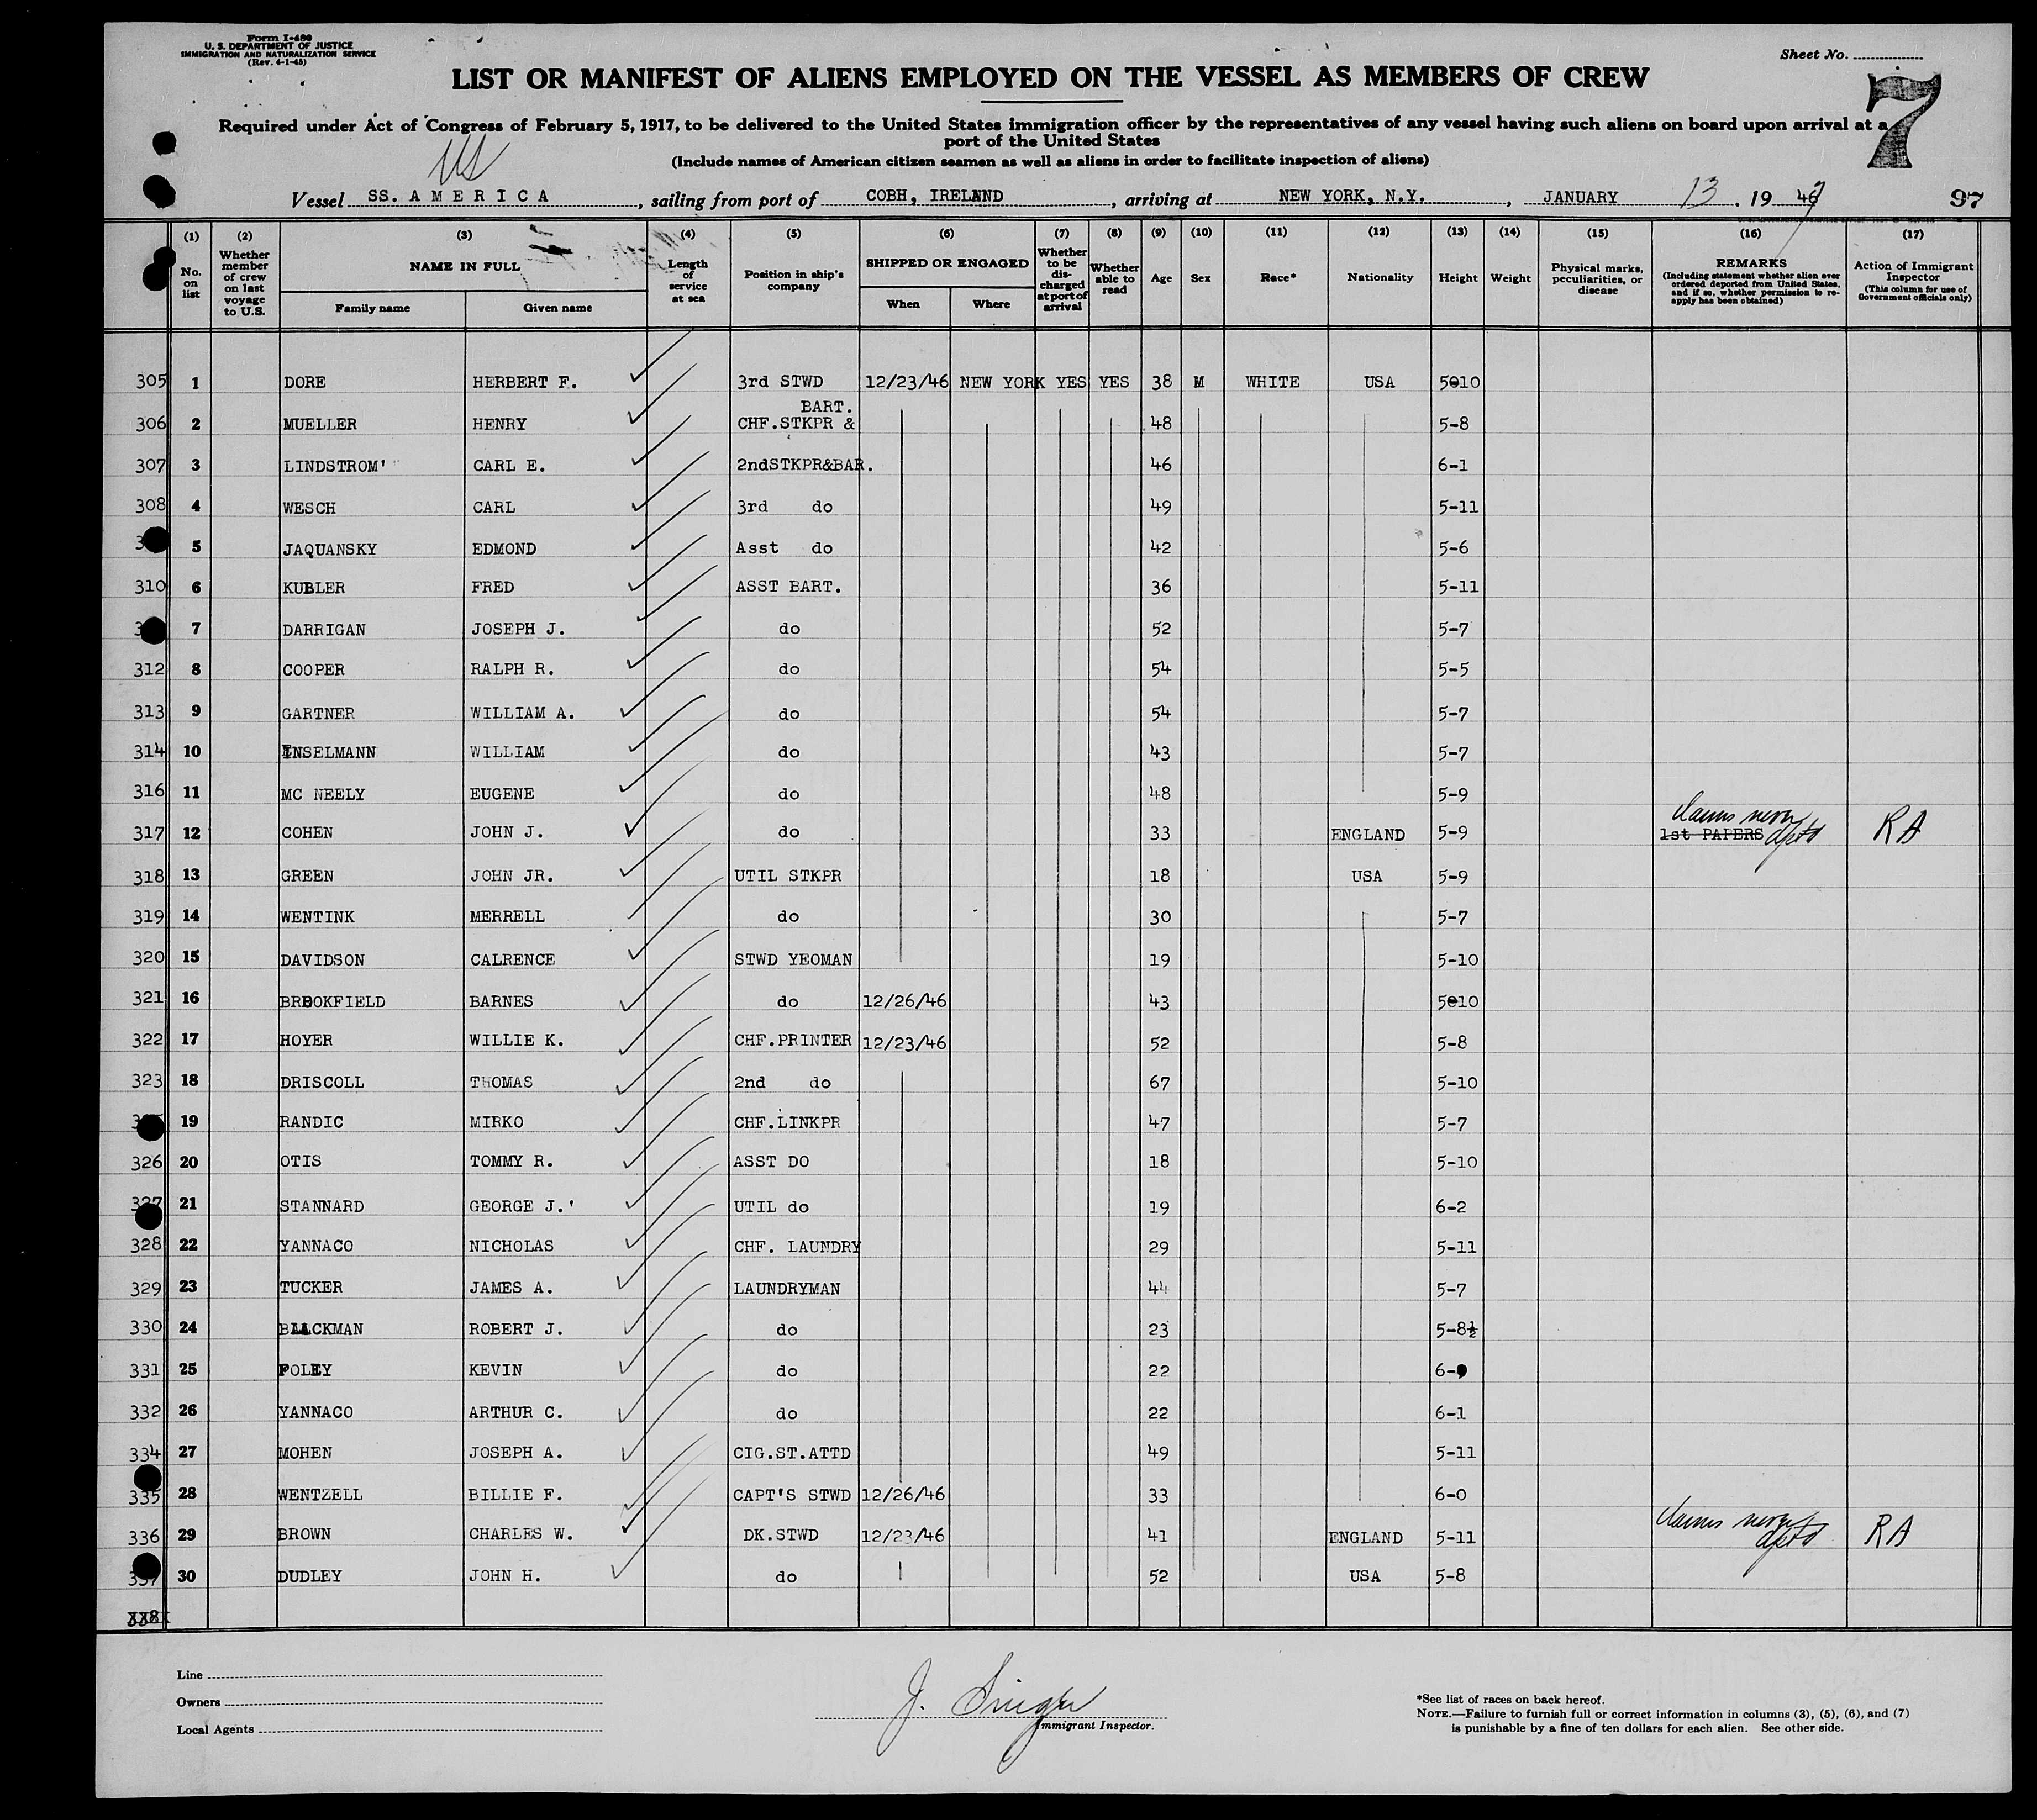 Form I-480
U. S. DEPARTMENT OF JUSTICE
IMMIGRATION AND NATURALIZATION SERVICE
(Rev. 4-1-45)
Sheet No.
7
LIST OR MANIFEST OF ALIENS EMPLOYED ON THE VESSEL AS MEMBERS OF CREW
Required under Act of Congress of February 5, 1917, to be delivered to the United States immigration officer by the representatives of any vessel having such aliens on board upon arrival at a
port of the United States
(Include names of American citizen seamen as well as aliens in order to facilitate inspection of aliens)
US
Vessel SS. AMERICA, sailing from port of COBH, IRELAND, arriving at NEW YORK, N.Y., JANUARY 13, 1947 97
(1) No. on list
(2) Whether member of crew on last voyage to U.S.
(3) NAME IN FULL Family name Given name
(4) Length of service at sea
(5) Position in ship's company
(6) SHIPPED OR ENGAGED When Where
(7) Whether to be discharged at port of arrival
(8) Whether able to read
(9) Age
(10) Sex
(11) Race*
(12) Nationality
(13) Height
(14) Weight
(15) Physical marks, peculiarities, or disease
(16) REMARKS (Including statement whether alien ever ordered deported from United States, and if so, whether permission to reapply has been obtained)
(17) Action of Immigrant Inspector (This column for use of Government officials only)
305 1 DORE HERBERT F. 3rd STWD 12/23/46 NEW YORK YES YES 38 M WHITE USA 5-10
306 2 MUELLER HENRY CHF.STKPR & BART. 48 5-8
307 3 LINDSTROM CARL E. 2ndSTKPR&BAR. 46 6-1
308 4 WESCH CARL 3rd do 49 5-11
5 JAQUANSKY EDMOND Asst do 42 5-6
310 6 KUBLER FRED ASST BART. 36 5-11
7 DARRIGAN JOSEPH J. do 52 5-7
312 8 COOPER RALPH R. do 54 5-5
313 9 GARTNER WILLIAM A. do 54 5-7
314 10 INSELMANN WILLIAM do 43 5-7
316 11 MC NEELY EUGENE do 48 5-9
317 12 COHEN JOHN J. do 33 ENGLAND 5-9 1st PAPERS claims never deptd RA
318 13 GREEN JOHN JR. UTIL STKPR 18 USA 5-9
319 14 WENTINK MERRELL do 30 5-7
320 15 DAVIDSON CALRENCE STWD YEOMAN 19 5-10
321 16 BROOKFIELD BARNES do 12/26/46 43 5-10
322 17 HOYER WILLIE K. CHF.PRINTER 12/23/46 52 5-8
323 18 DRISCOLL THOMAS 2nd do 67 5-10
19 RANDIC MIRKO CHF.LINKPR 47 5-7
326 20 OTIS TOMMY R. ASST DO 18 5-10
327 21 STANNARD GEORGE J. UTIL do 19 6-2
328 22 YANNACO NICHOLAS CHF. LAUNDRY 29 5-11
329 23 TUCKER JAMES A. LAUNDRYMAN 44 5-7
330 24 BLACKMAN ROBERT J. do 23 5-8½
331 25 FOLEY KEVIN do 22 6-
332 26 YANNACO ARTHUR C. do 22 6-1
334 27 MOHEN JOSEPH A. CIG.ST.ATTD 49 5-11
335 28 WENTZELL BILLIE F. CAPT'S STWD 12/26/46 33 6-0
336 29 BROWN CHARLES W. DK.STWD 12/23/46 41 ENGLAND 5-11 claims never deptd RA
337 30 DUDLEY JOHN H. do 52 USA 5-8
Line
Owners
Local Agents
J. Singer
Immigrant Inspector.
*See list of races on back hereof.
NOTE.—Failure to furnish full or correct information in columns (3), (5), (6), and (7)
is punishable by a fine of ten dollars for each alien. See other side.